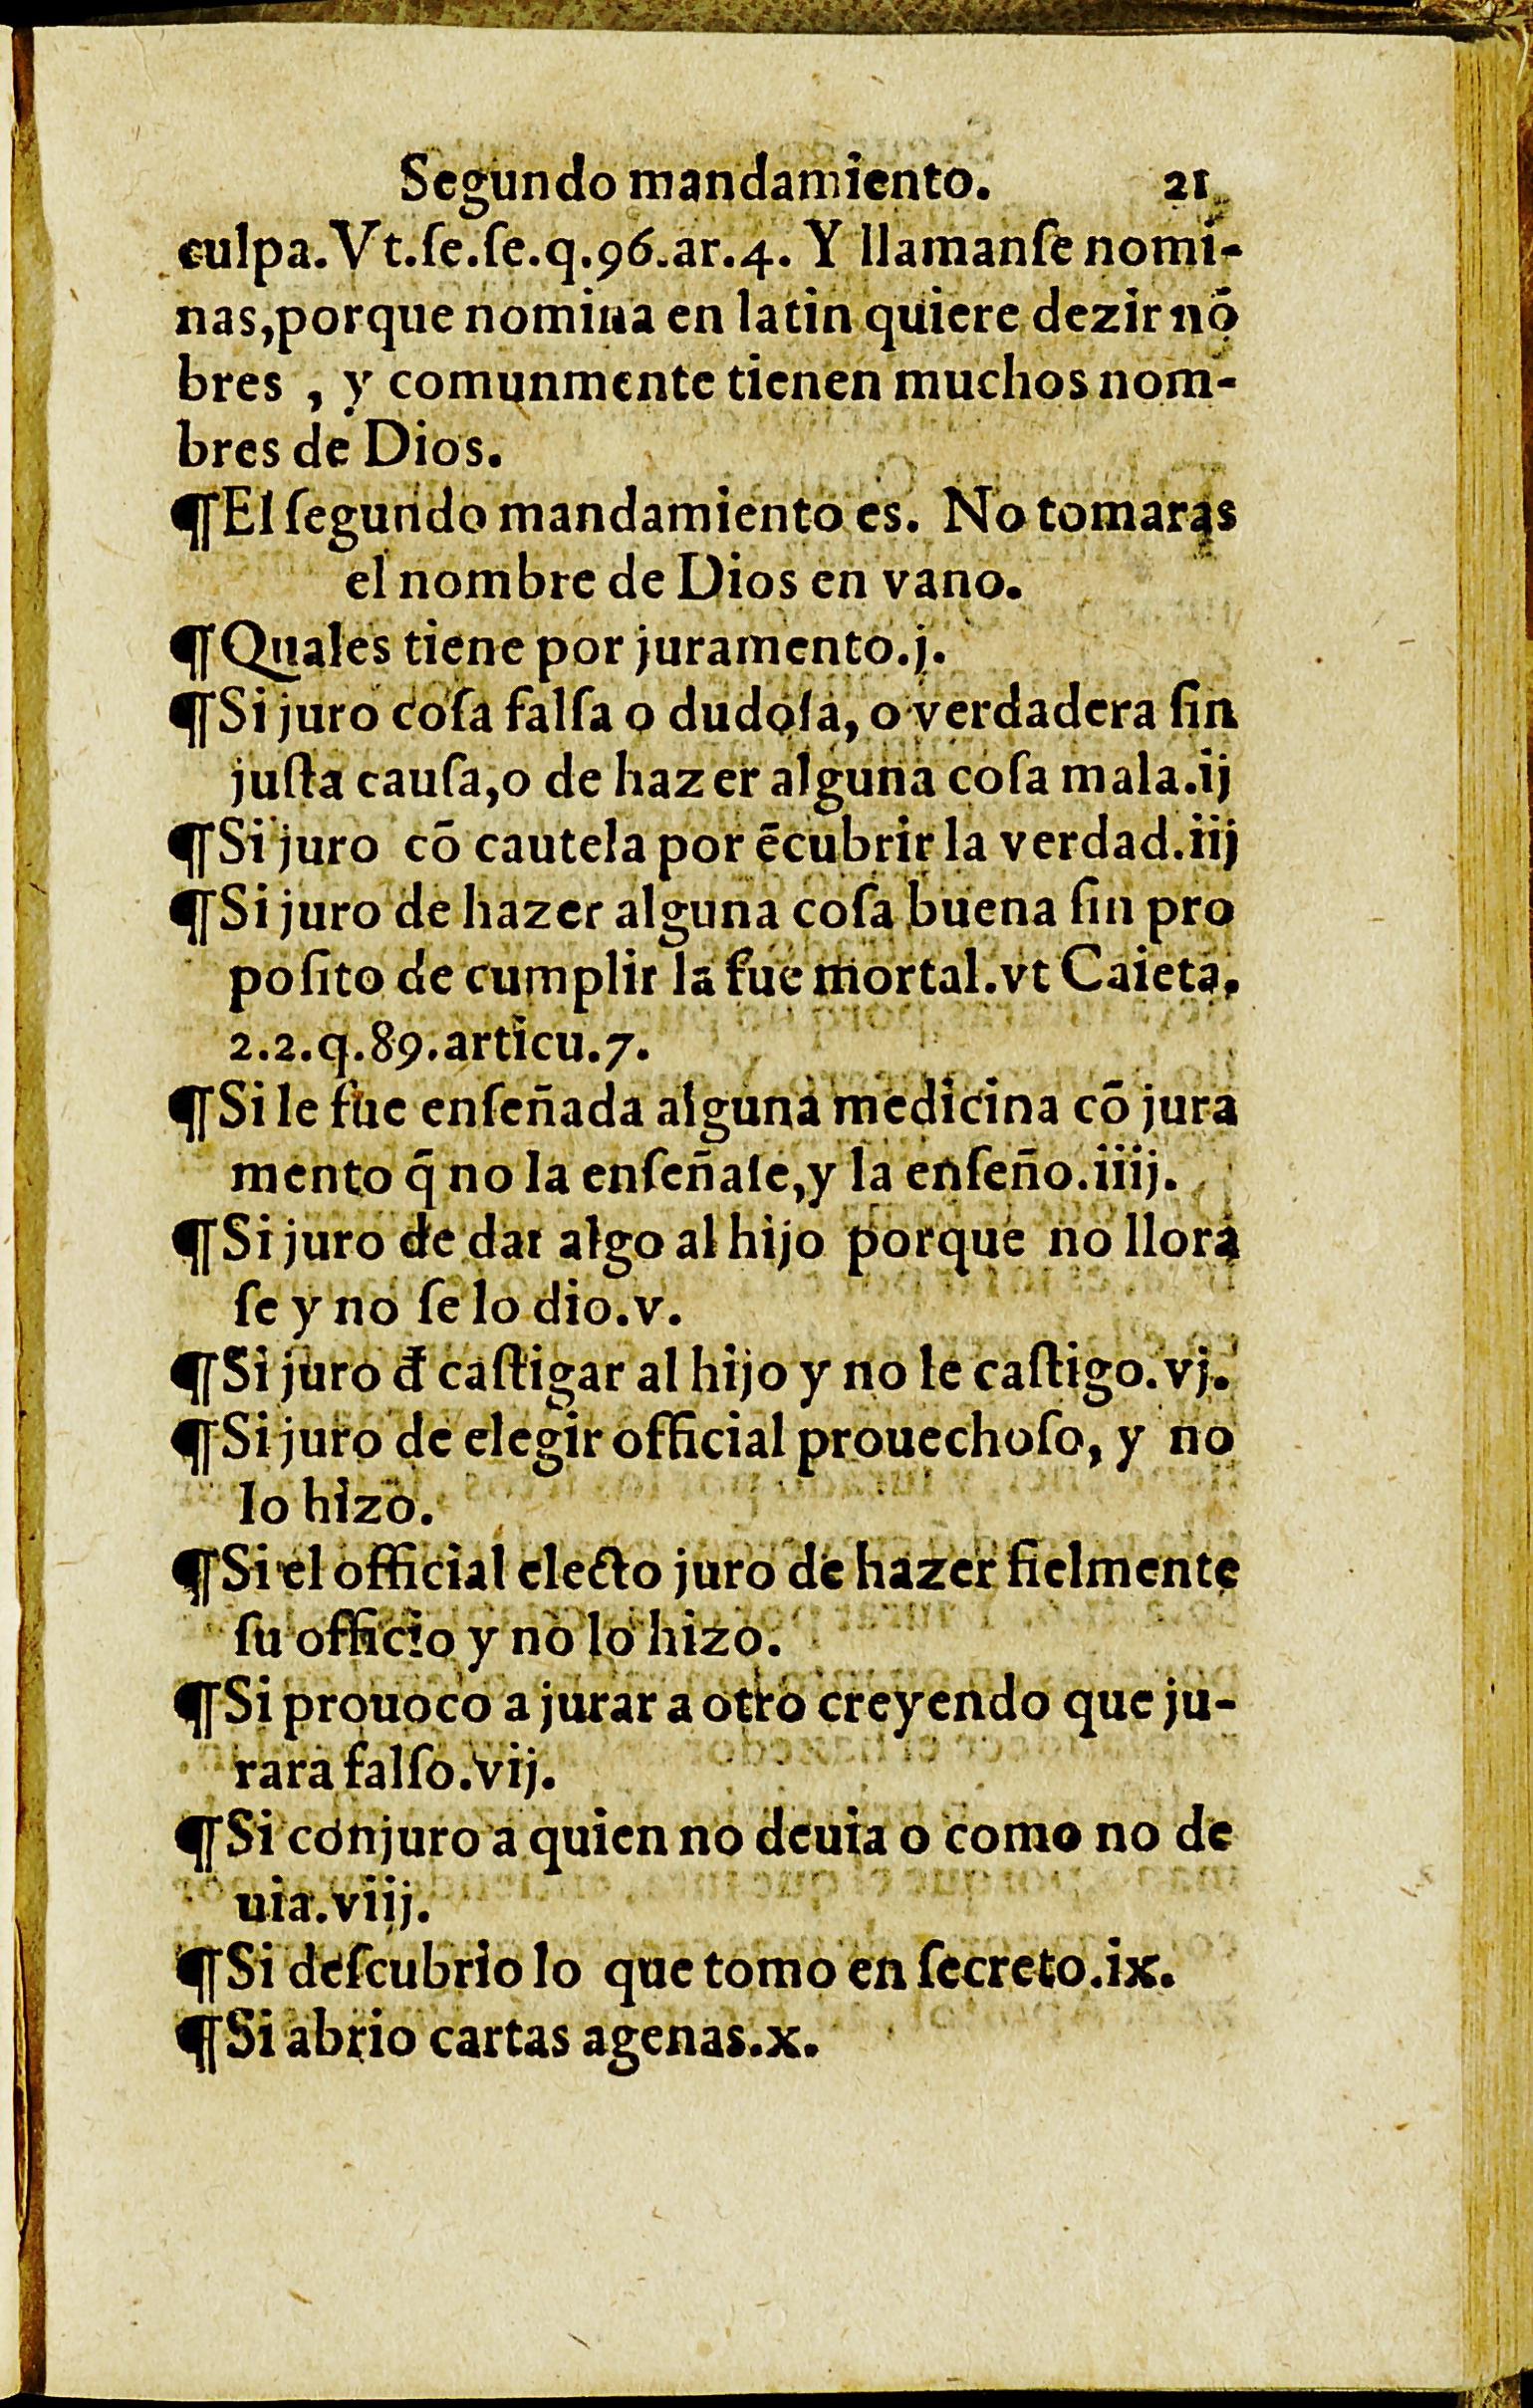 Segundo mandamiento. 21
culpa.Vt.ſe.ſe.q.96.ar.4. Y llamanſe nomi-
nas,porque nomina en latin quiere dezir nō
bres , y comunmente tienen muchos nom-
bres de Dios.
¶El ſegundo mandamiento es. No tomaras
el nombre de Dios en vano.
¶Quales tiene por juramento.j.
¶Si juro coſa falſa o dudoſa, o verdadera ſin
juſta cauſa,o de hazer alguna coſa mala.ij
¶Si juro cō cautela por ēcubrir la verdad.iij
¶Si juro de hazer alguna coſa buena ſin pro
poſito de cumplir la fue mortal.vt Caieta.
2.2.q.89.articu.7.
¶Si le fue enſeñada alguna medicina cō jura
mento q̄ no la enſeñaſe,y la enſeño.iiij.
¶Si juro de dar algo al hijo porque no llora
ſe y no ſe lo dio.v.
¶Si juro đ caſtigar al hijo y no le caſtigo.vj.
¶Si juro de elegir official prouechoſo, y no
lo hizo.
¶Si el official electo juro de hazer fielmente
ſu officio y no lo hizo.
¶Si prouoco a jurar a otro creyendo que ju-
rara falſo.vij.
¶Si conjuro a quien no deuia o como no de
uia.viij.
¶Si deſcubrio lo que tomo en ſecreto.ix.
¶Si abrio cartas agenas.x.